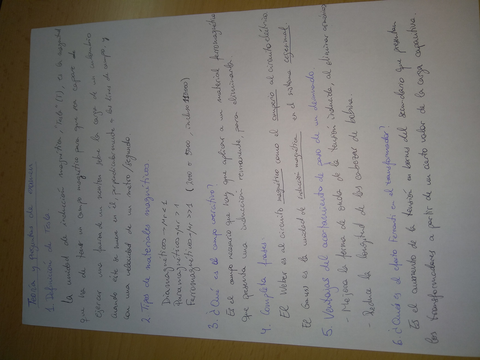 Teoría y preguntas de examen
1. Definición de tesla
La unidad de inducción magnética, tesla (T), es la magnitud
que ha de tener un campo magnético para que sea capaz de
ejercer una fuerza de un newton sobre la carga de un culombio
cuando ésta se mueve en él, perpendicularmente a las líneas de campo, y
con una velocidad de un metro/segundo
2. Tipos de materiales magnéticos.
Diamagnéticos → μr < 1
Paramagnéticos μr > 1
Ferromagnéticos μr >> 1
3. ¿Qué es el campo coercitivo?
Es el campo necesario que hay que aplicar a un material ferromagnético
que presenta una inducción remanente, para eliminarla
4. Completa frases
El Weber es al circuito magnético como el amperio al circuito eléctrico
El Gauss es la unidad de inducción magnética en el sistema cegesimal
5. Ventajas del acortamiento de paso de un devanado
- Mejora la forma de onda de la tensión inducida, al eliminar armónicos
- Reduce la longitud de las cabezas de bobina.
6. ¿Qué es el efecto Ferranti en el transformador?
Es el aumento de la tensión en bornes del secundario que presentan
los transformadores a partir de un cierto valor de la carga capacitiva.